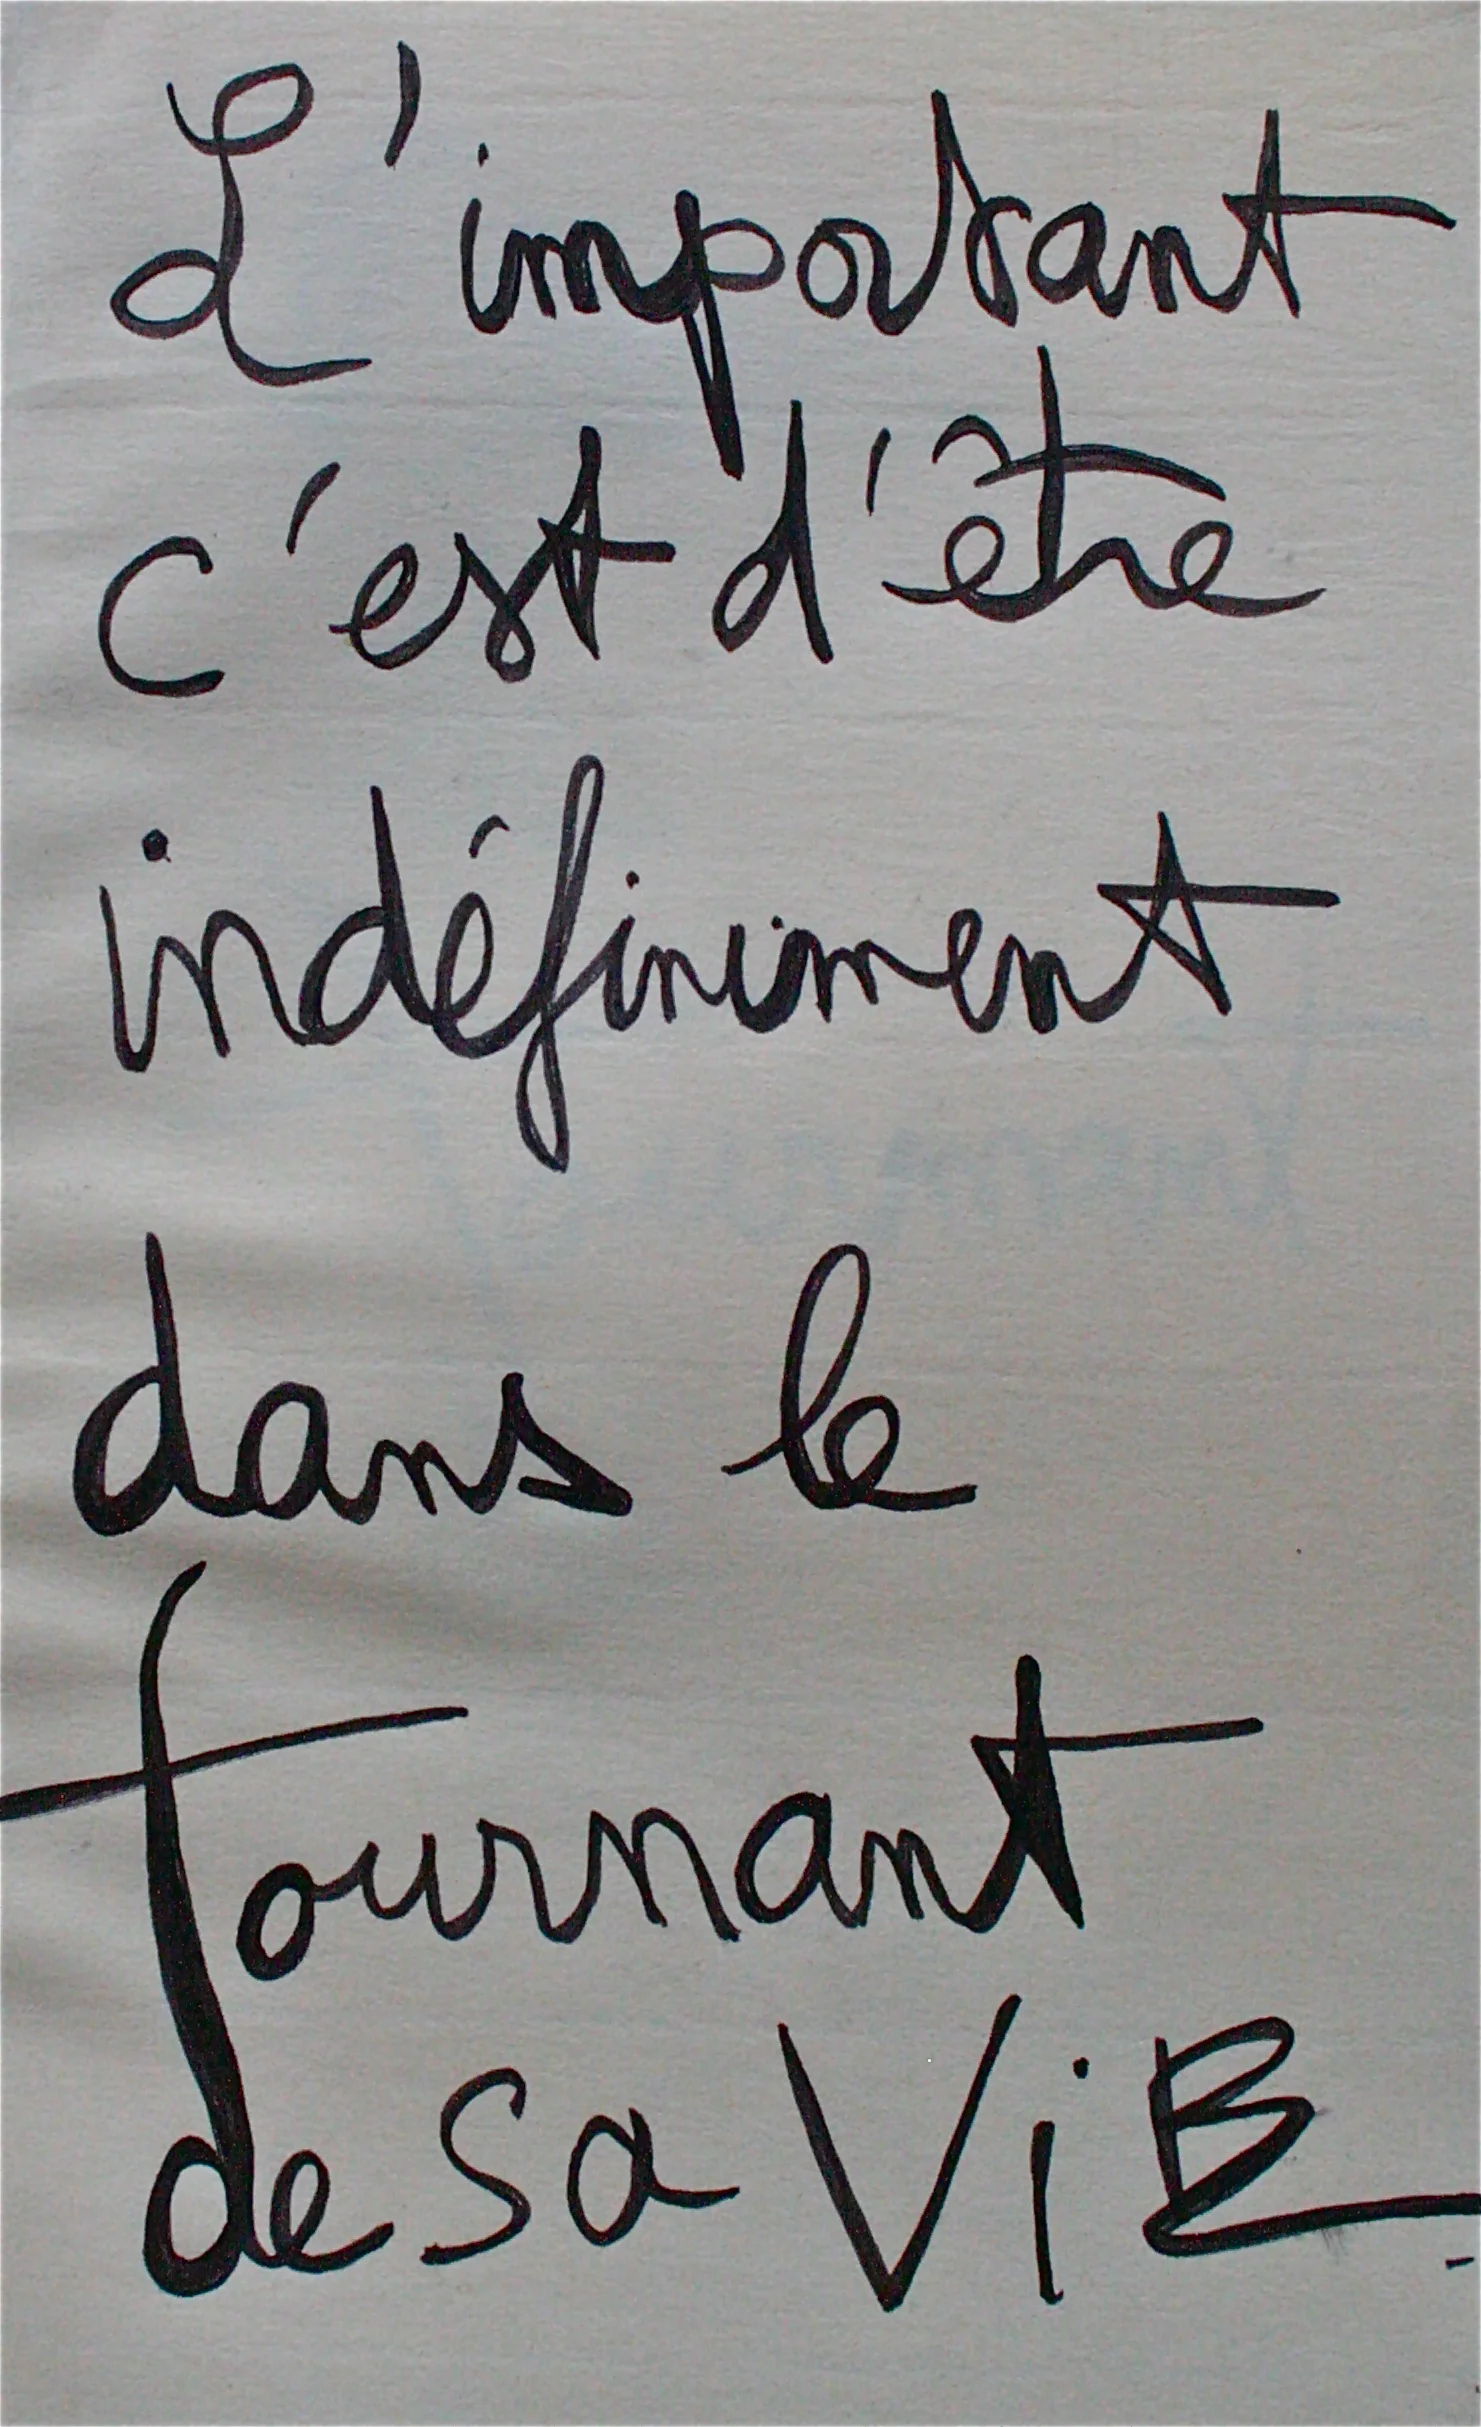 L'important
c'est d'être
indéfiniment
dans le
tournant
de sa ViE.